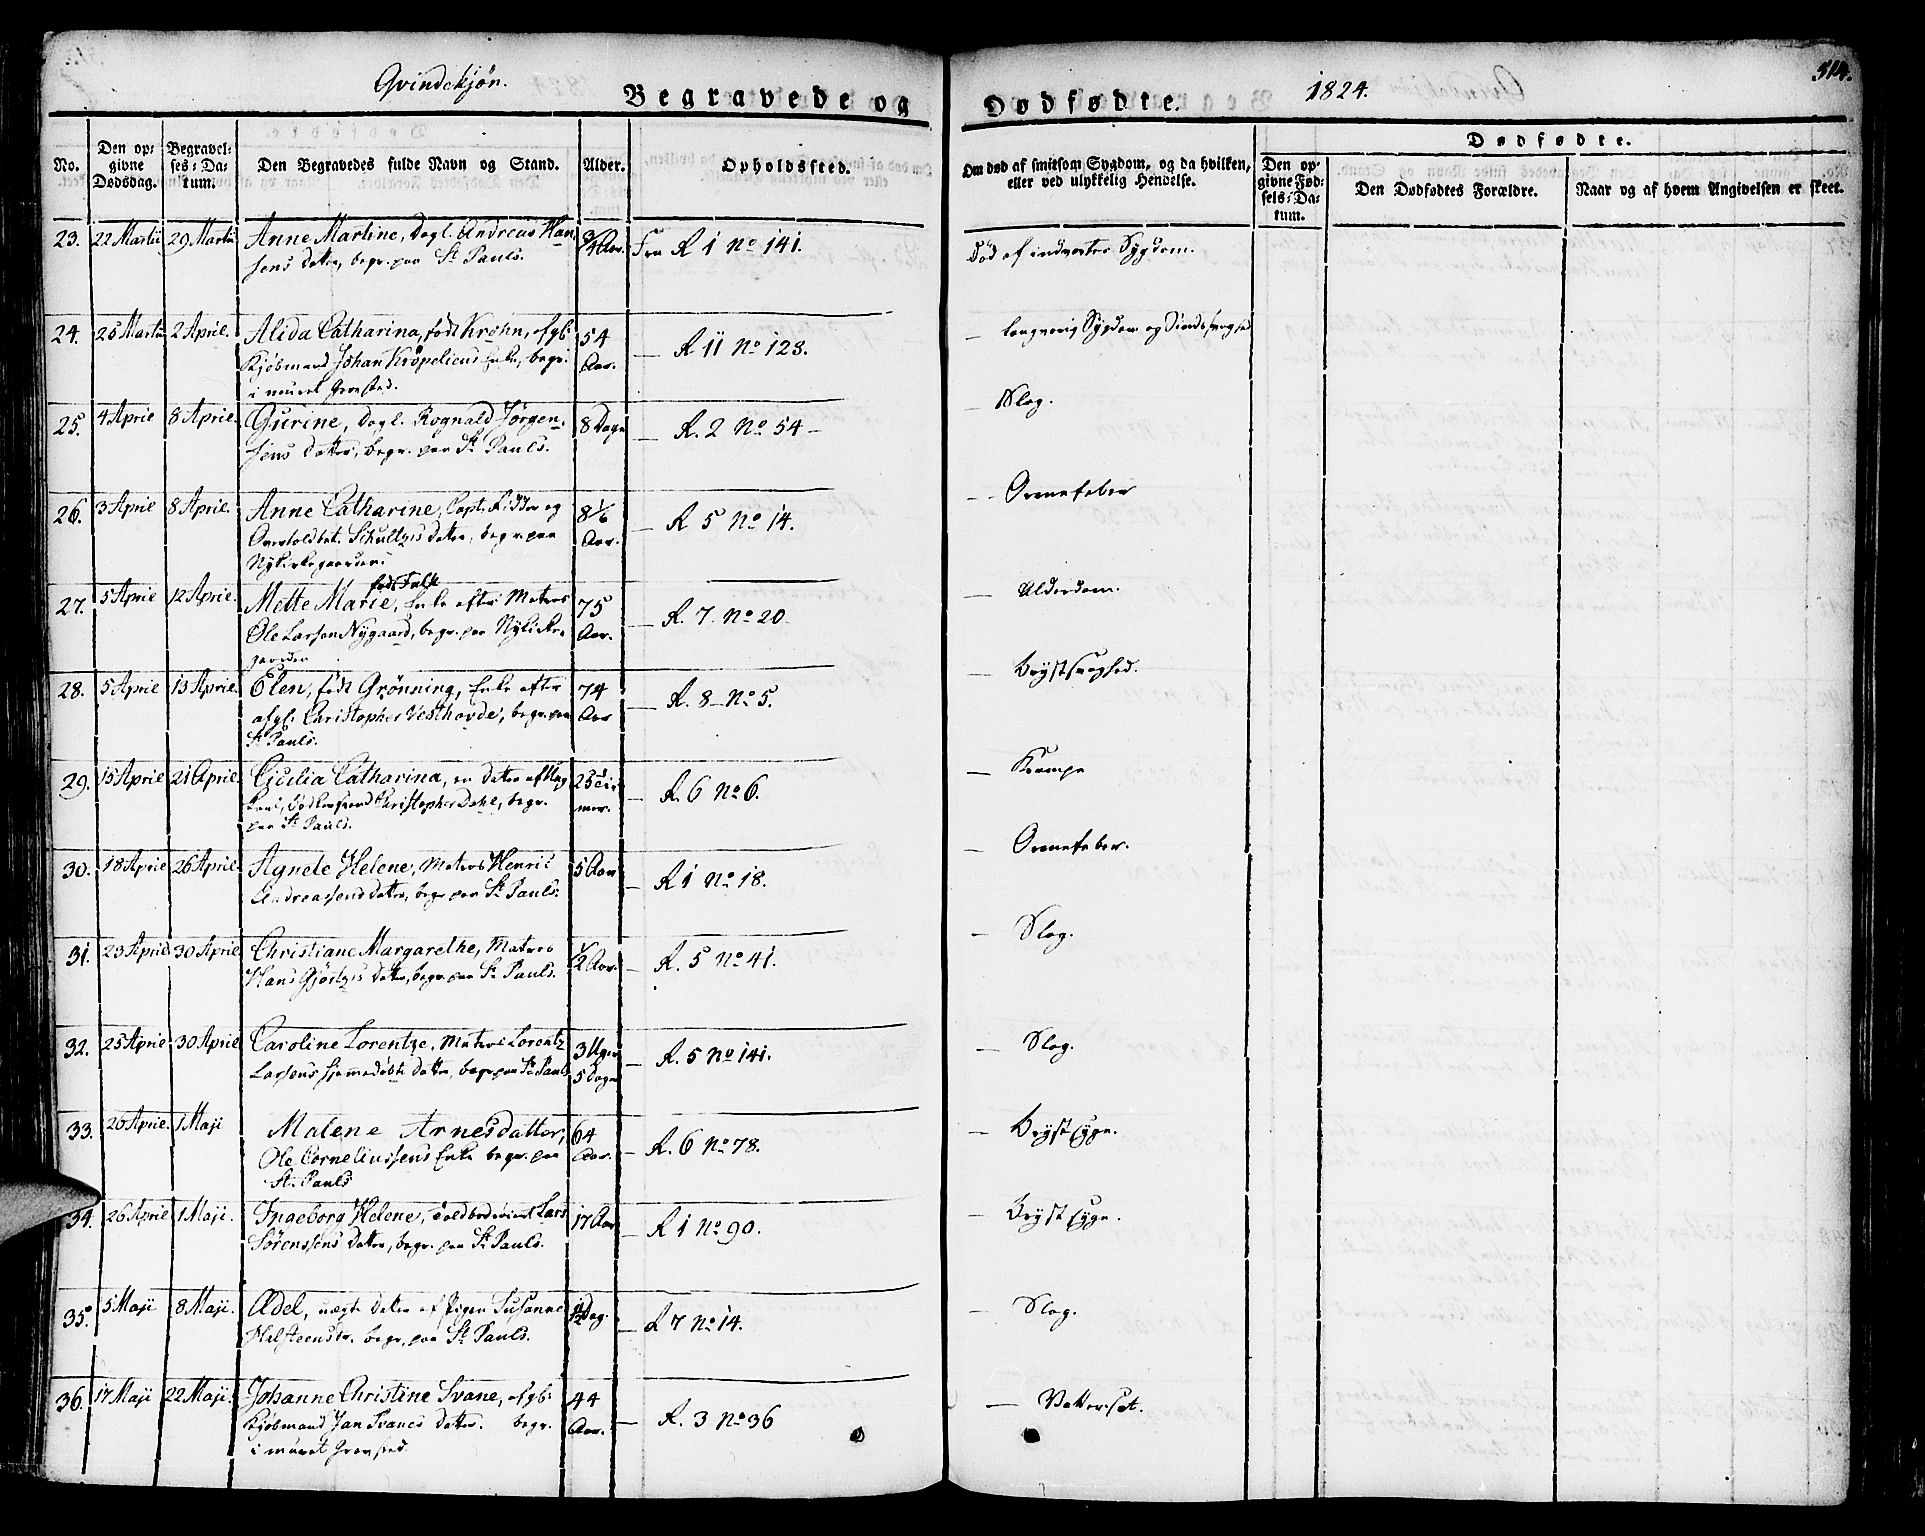 Qvindekjøn.
Begravede og
Dødfødte.
1824.
514.
No.
Den op-
givne
Dødsdag.
Begravel-
ses-Da-
tum.
Den Begravedes fulde Navn og Stand.
Alder.
Opholdssted.
Om død af smitsom Sygdom, og da hvilken,
eller ved ulykkelig Hendelse.
Dødfødte.
Den op-
givne Fød-
sels-Da-
tum.
Den Dødfødtes Forældre.
Naar og af hvem Angivelsen er skeet.
23. 22 Martii 29 Martii Anne Martine, Dagl. Andreas Han 3/4 Aar. Fra R 1 No 141. Død af indvortes Sygdom.
sens Datter, begr. paa St Pauls.
24. 25 Martii 2 April. Alida Catharina, født Krohn, afgl. 54 — R 11 No 128. — langvarig Sygdom og
Kjøbmand Johan Krøpelieus Enke, begr. Aar.
i muret Gravsted.
25. 4 April 8 April. Gurine, Dagl. Rognald Jørgen- 8 Dage — R. 2 No 54 — — Slag.
sens Datter, begr. paa St Pauls.
26. 3 April 8 April. Anne Catharine, Capt. Ridder og 8 1/6 — R 5 No 14. — Ormefeber
Schultzes Datter, begr. paa Aar.
Nykirkegaarden.
født Falck
27. 5 April 12 April. Mette Marie, Enke efter Matros 75 — R. 7 No 20. — Alderdom.
Ole Larsen Nygaard, begr. paa Nykirke- Aar.
gaarden
28. 5 April 13 April. Elen, født Grønning, Enke efter 74 — R. 8 No 5. — Brystsvaghed.
afgl. Christopher Vesthovde, begr. paa Aar
St Pauls.
29. 15 April 21 April. Cicilia Catharina, en Datter af 25 — R. 6 No 6. — Krampe
Christopher Dahl, begr.
paa St Pauls.
30. 18 April 26 April. Agnete Helene, Matros Henric 5 Aar — R 1 No 18. — Ormefeber.
Andreassens Datter, begr. paa St Pauls.
31. 23 April 30 April Christiane Margarethe, Matros 1/2 Aar. — R. 5 No 41. — Slag.
Hans Gjørtzes Datter, begr. paa St Pauls.
32. 25 April 30 April Caroline Lorentze, Matros Lorentz 3 Uger — R. 5 No 141. — Slag.
Larsens hjemmedøbte Datter, begr. paa St Pauls 5 Dage
33. 26 April. 1 Maji Malene Arnesdatter, 64 — R. 6 No 78. — Brystsyge.
Ole Corneliussens Enke begr. paa Aar.
St. Pauls
34. 26 April 1 Maji. Ingeborg Helene, Toldbetient Lars 17 Aar — R 1 No 90. — Brystsyge.
Sørenssens Datter, begr. paa St Pauls.
35. 5 Maji 8 Maji. Ædel, uægte Datter af Pigen Susanne 1/2 Dag. — R 7 No 14. — Slag.
Halsteensdr. begr. paa St Pauls.
36. 17 Maji 22 Maji. Johanne Christine Svane, afgl. 44 — R. 3 No 36 — Vattersot.
Kjøbmand Jan Svanes Datter. begr. Aar.
i muret Gravsted